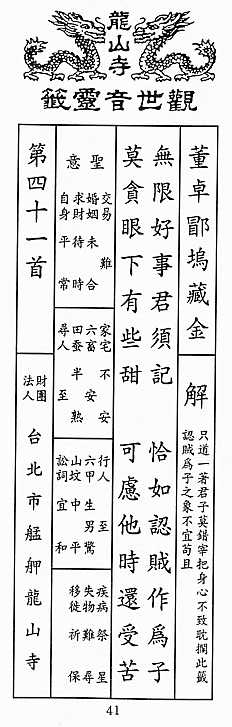 龍山寺
觀世音靈籤
董卓郿塢藏金
解
只道一著君子莫錯宰把身心不致耽擱此籤
認賊爲子之象不宜苟且
無限好事君須記 恰如認賊作爲子
莫貪眼下有些甜 可慮他時還受苦
聖意
交易 難
婚姻 未合
求財 待時
自身 平常
家宅 不安
六畜 安
田蚕 半熟
尋人 至
行人 至
六甲 生男驚
山墳 中平
訟詞 宜和
疾病 祭星
失物 難尋
移徙 祈保
第四十一首
財團法人
台北市艋舺龍山寺
41